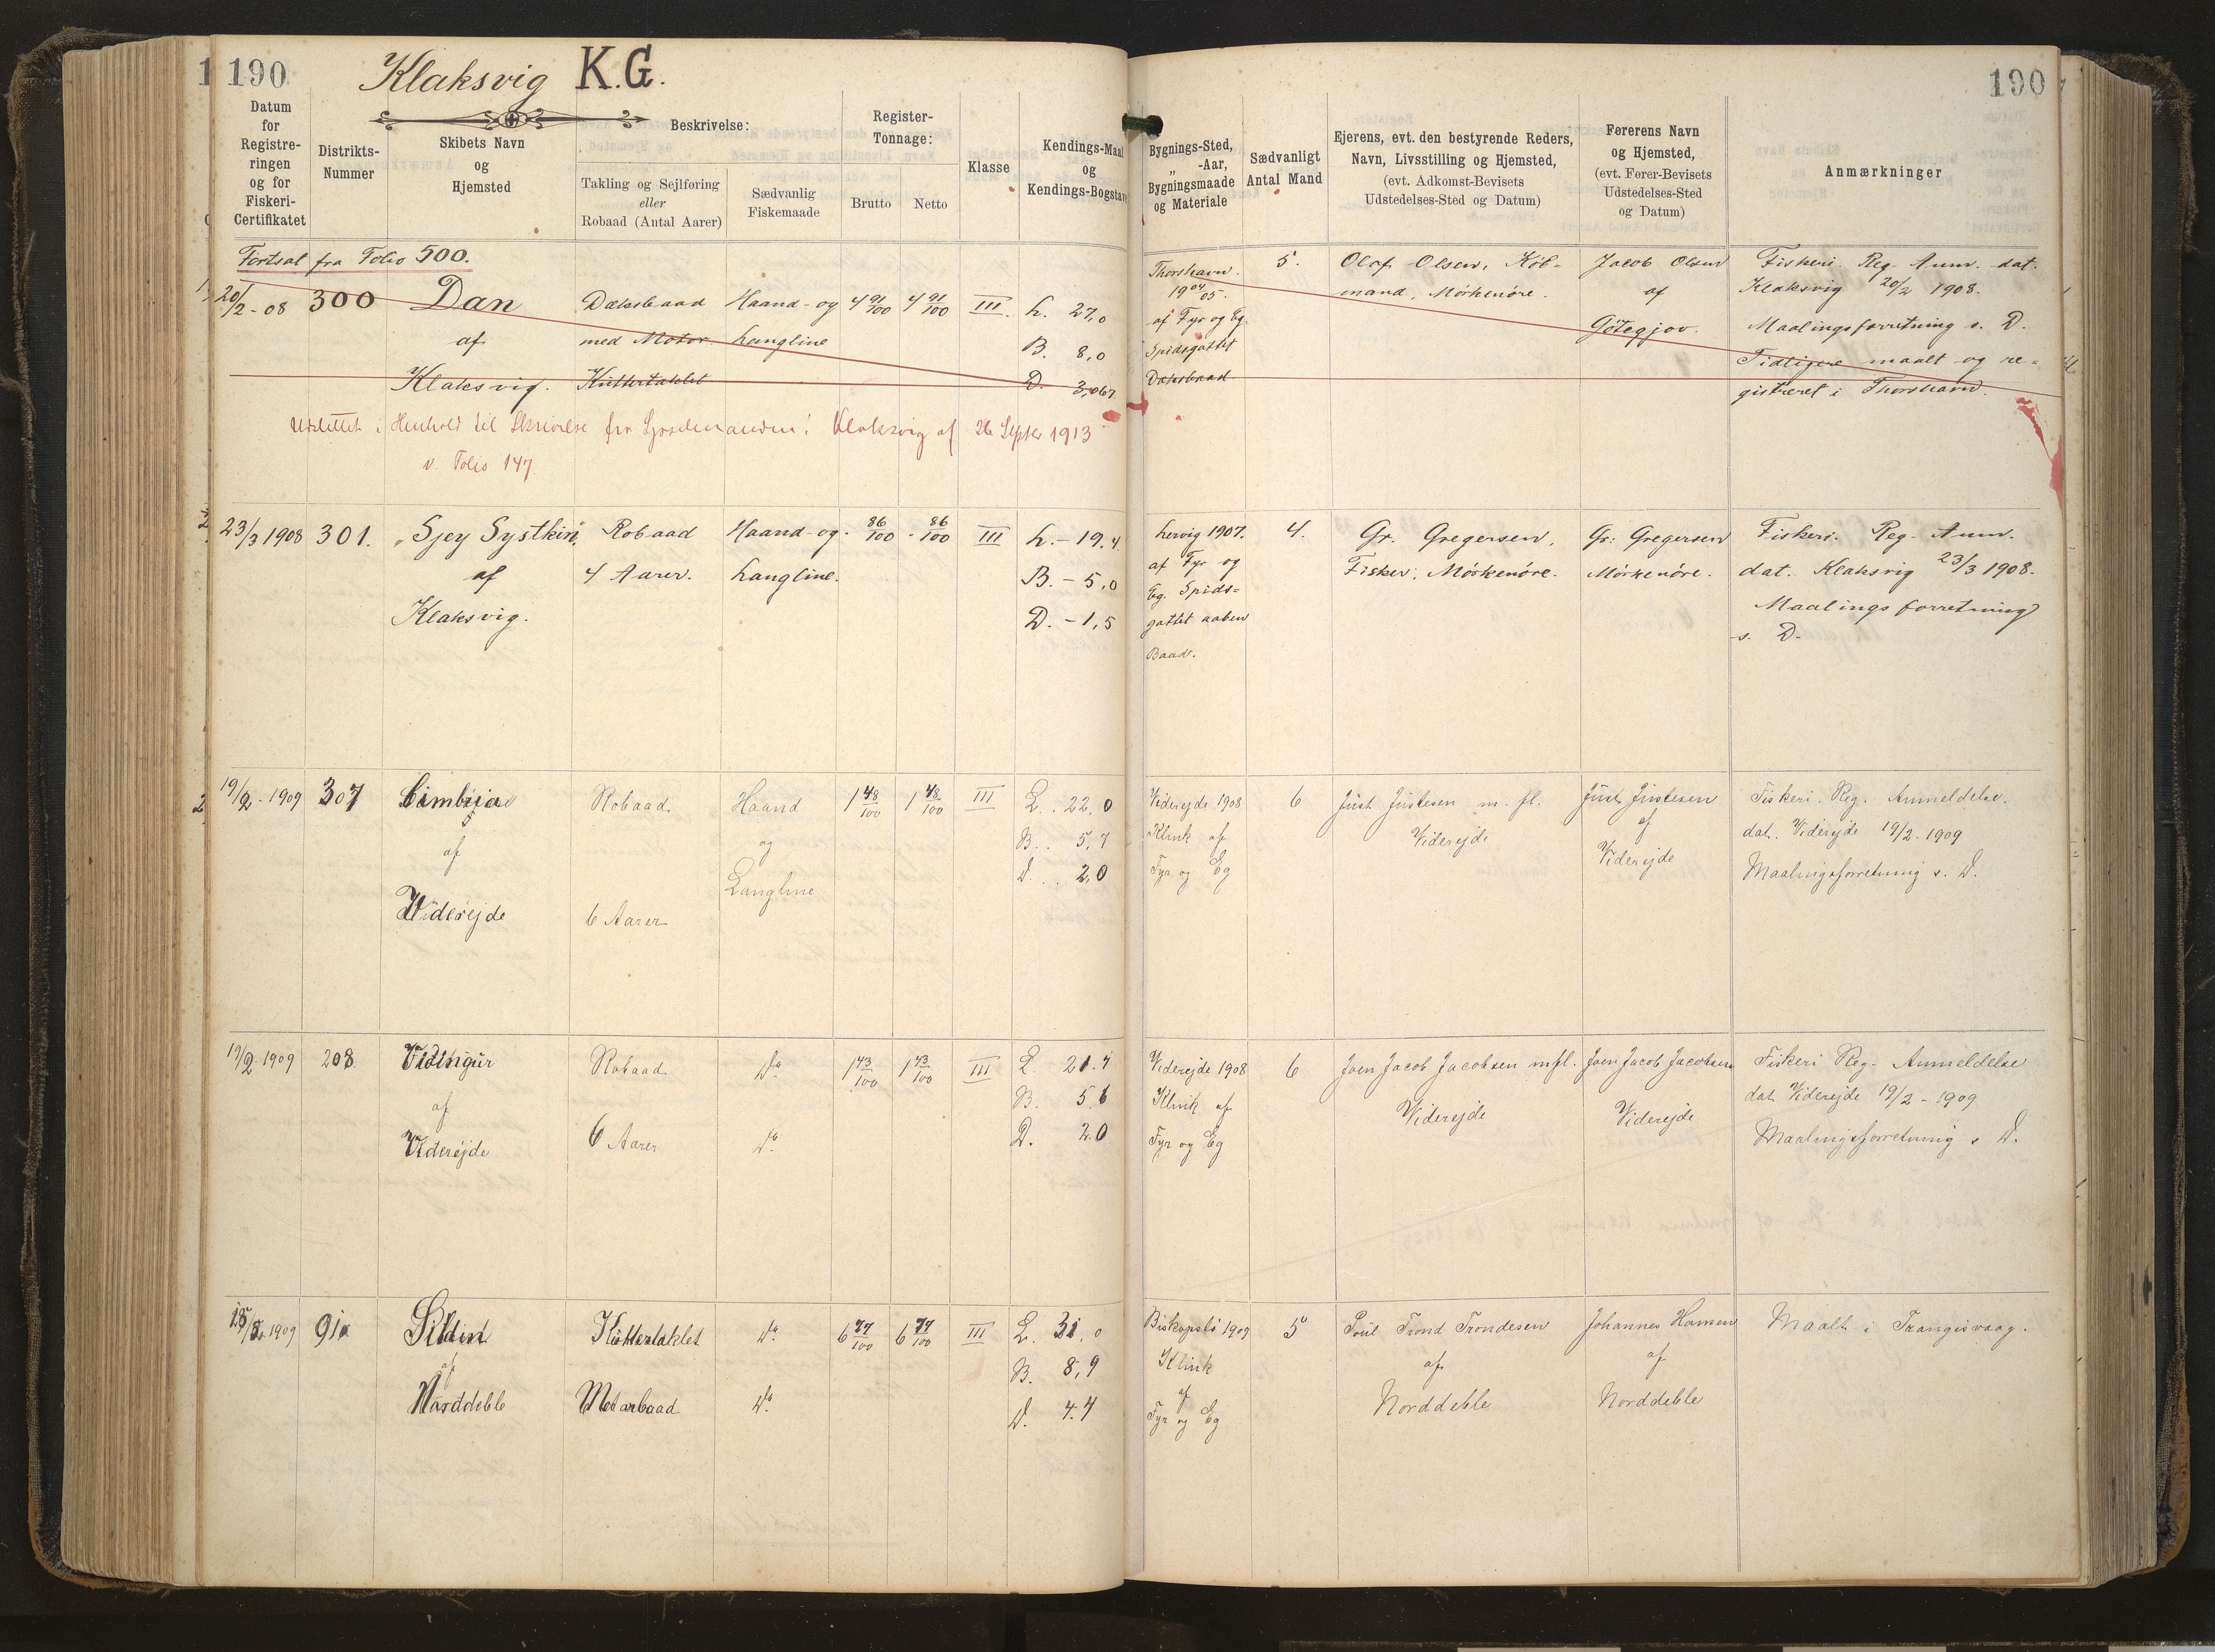 190
Klaksvig K.G.
190
Datum for Registreringen og for Fiskeri-Certifikatet
Distrikts-Nummer
Skibets Navn og Hjemsted
Beskrivelse:
Takling og Sejlføring eller Robaad (Antal Aarer)
Sædvanlig Fiskemaade
Register-Tonnage:
Brutto
Netto
Klasse
Kendings-Maal og Kendings-Bogstave
Bygnings-Sted, „ -Aar, Bygningsmaade og Materiale
Sædvanligt Antal Mand
Ejerens, evt. den bestyrende Reders, Navn, Livsstilling og Hjemsted, (evt. Adkomst-Bevisets Udstedelses-Sted og Datum)
Førerens Navn og Hjemsted, (evt. Fører-Bevisets Udstedelses-Sted og Datum)
Anmærkninger
Fortsat fra Folio 500.
20/2-08 300 Dan af Klaksvig.
Dæksbaad med Motor Kuttertaklet
Haand- og Langline
4 91/100 4 91/100 III.
L. 27,0
B. 8,0
D. 3,067
Thorshavn. 1904/05. af Fyr og Eg. Spidsgattet Dæksbaad
5.
Olaf Olsen, Köbmand, Mörkenöre.
Jacob Olsen af Götegjov.
Fiskeri. Reg. Anm. dat.
Klaksvig 20/2 1908.
Maalingsforretning s. D.
Tidligere maalt og re-
gistreret i Thorshavn.
Udslettet i Henhold til Skrivelse fra Sysselmanden i Klaksvig af 26 Septbr 1913
v. Folio 147
23/3 1908 301. „Sjey Systkin" af Klaksvig.
Robaad 4 Aarer.
Haand- og Langline.
86/100 86/100 III
L. - 19.4
B. - 5,0
D. - 1,5
Lervig 1907. af Fyr og Eg. Spids=gattet aaben Baad.
4.
Gr. Gregersen, Fisker, Mörkenöre.
Gr: Gregersen Mörkenöre.
Fiskeri. Reg- Anm.
dat. Klaksvig 23/3 1908.
Maalingsforretning
s. D.
19/2-1909 307 Cimbria af Viderejde
Robaad 6 Aarer
Haand og Langline
1 48/100 1 48/100 III
L. 22,0
B. 5,7
D. 2,0
Viderejde 1908 Klink af Fyr og Eg
6
Just Justesen m. fl. Viderejde
Just Justesen af Viderejde
Fiskeri. Reg. Anmeldelse.
dat. Viderejde 19/2-1909
Maalingsforretning s. D.
19/2-1909 208 Vidingur af Viderejde
Robaad 6 Aarer
Do Do
1 43/100 1 43/100 III
L. 21.7
B. 5.6
D. 2.0
Viderejde 1908 Klink af Fyr og Eg
6
Joen Jacob Jacobsen mfl. Viderejde
Joen Jacob Jacobsen Viderejde
Fiskeri Reg- Anmeldelse
dat. Viderejde 19/2-1909
Maalingsforretning s D.
1909 91a Sildin af Norddeble
Kuttertaklet Motorbaad
Do Do
6 77/100 6 77/100 III
L. 31,0
B. 8,9
D. 4.4
1909 Klink af Fyr og Eg
5
Poul Trond Trondesen af Norddeble
Johannes Hansen af Norddeble
Maalt i Trangisvaag.